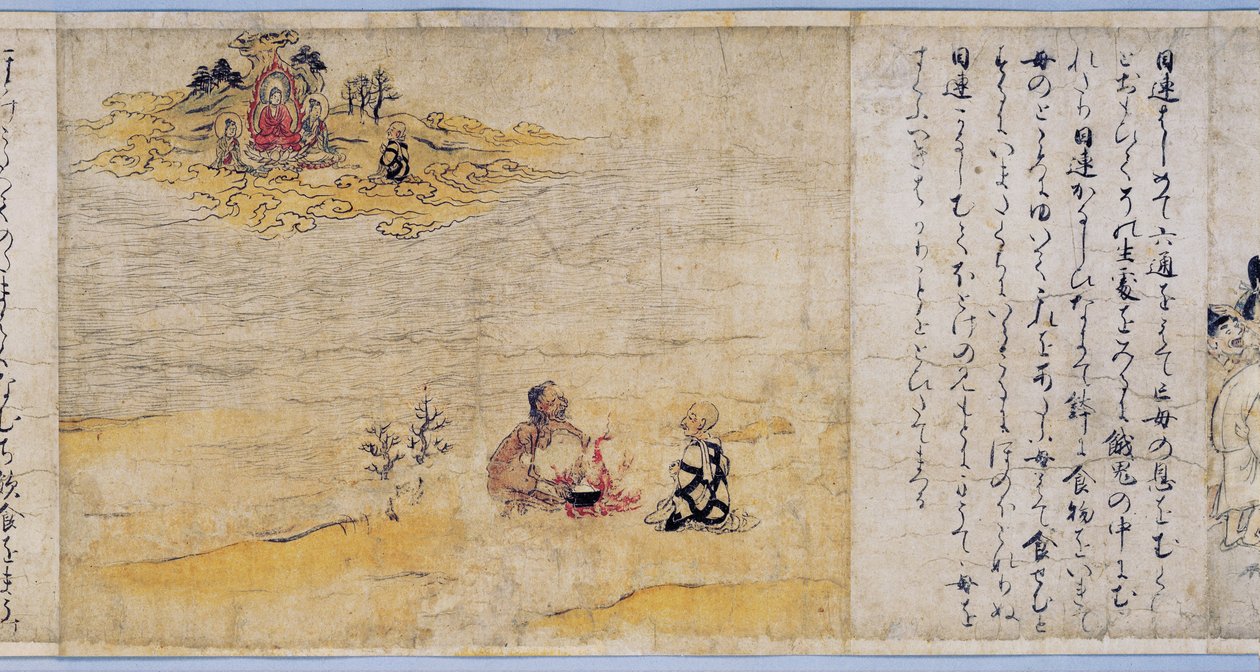 目連はしめて六通をえて亡母の恩をむくひ
とおもひてその生處をみるに餓鬼の中にむ
れたり目連かなしひなきて鉢に食物をいれて
母のところにゆいてこれをあたふ母えて食せむと
するにいまたくちにいらさるにほのほとなりぬ
目連かなしむてほとけのみもとにまうて母を
すくふへきはかりことをとひたてまつる
なむち飲食をまう